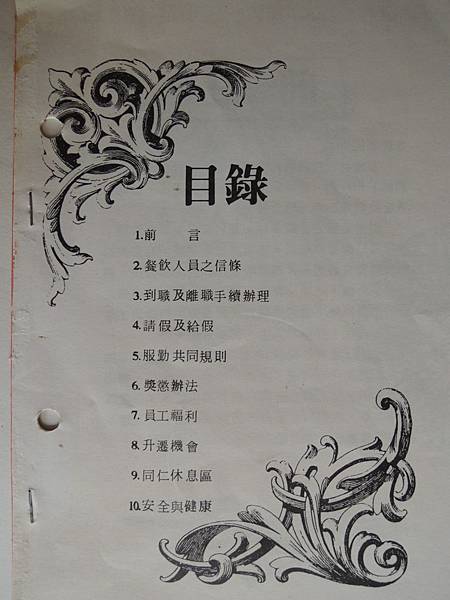 目錄
1.前 言
2.餐飲人員之信條
3.到職及離職手續辦理
4.請假及給假
5.服勤共同規則
6.獎懲辦法
7.員工福利
8.升遷機會
9.同仁休息區
10.安全與健康